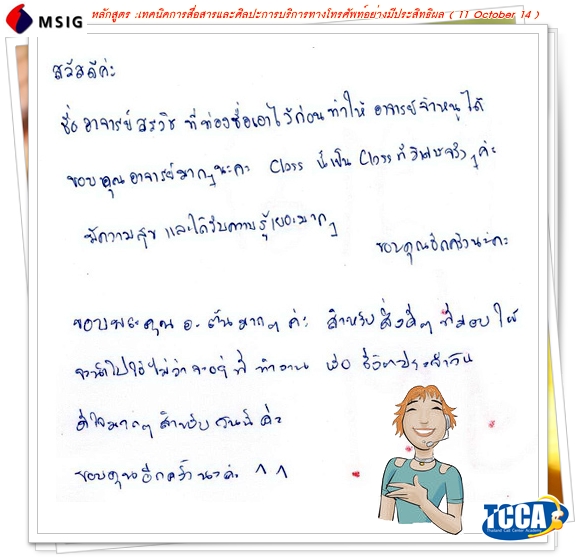 MSIG
หลักสูตร :เทคนิคการสื่อสารและศิลปะการบริการทางโทรศัพท์อย่างมีประสิทธิผล ( 11 October 14 )
สวัสดีค่ะ
ชื่ออาจารย์ ที่ท่องชื่อเอาไว้ก่อนทำให้ อาจารย์จำหนูได้
ขอบคุณอาจารย์มากๆนะคะ Class นี้เป็น Class ที่วิเศษจริงๆค่ะ
มีความสุข และได้รับความรู้เยอะมากๆ
ขอบคุณอีกครั้งนะคะ
ขอบพระคุณ อ. ต้นมากๆ ค่ะ สำหรับสิ่งดีๆ ที่มอบให้
จะนำไปใช้ไม่ว่าจะอยู่ที่ ทำงาน หรือ ชีวิตประจำวัน
ดีใจมากๆ สำหรับวันนี้ค่ะ
ขอบคุณอีกครั้งนะค่ะ ^^
TCCA
Thailand Call Center Academy